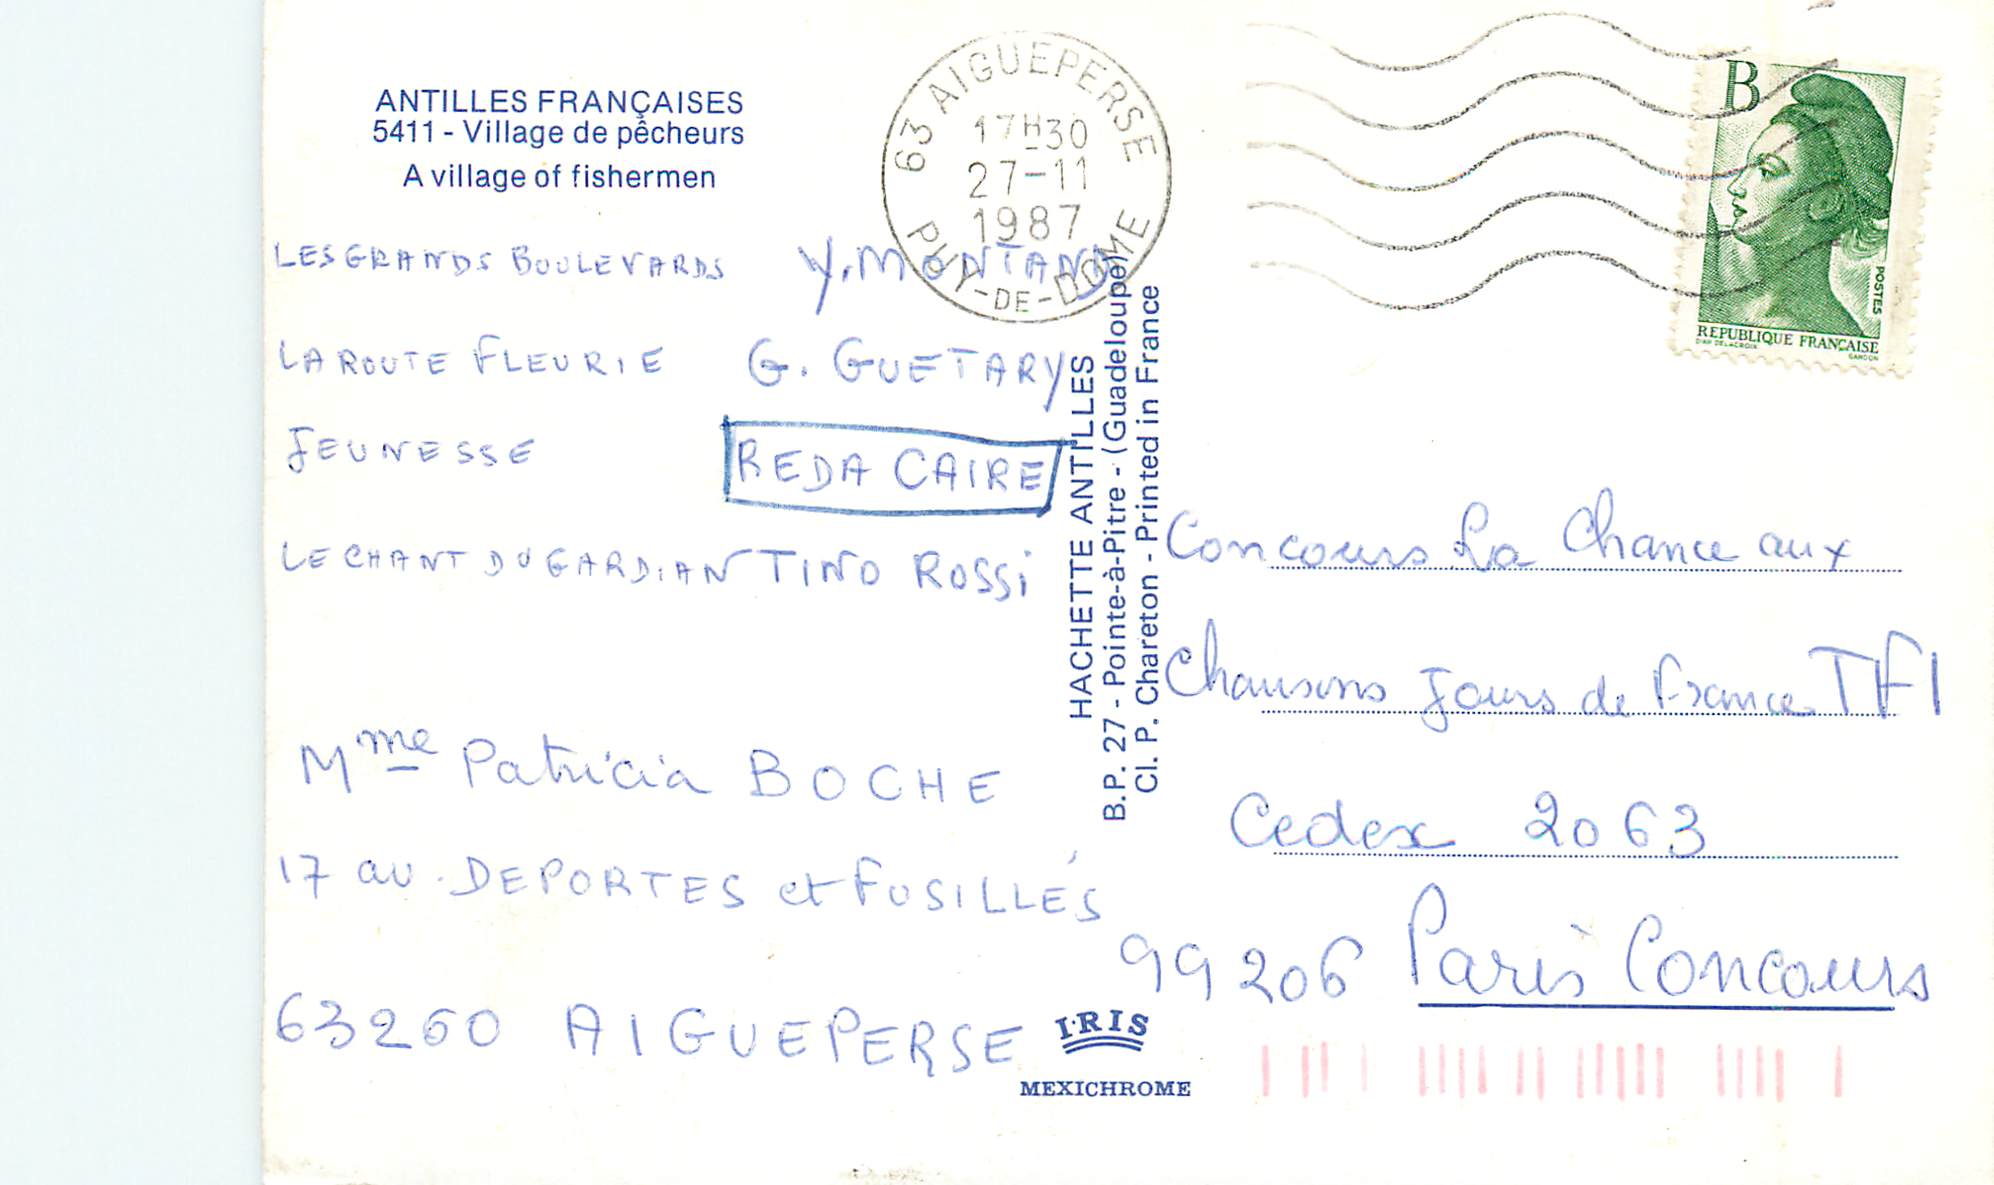 ANTILLES FRANÇAISES
5411 - Village de pêcheurs
A village of fishermen
63 AIGUEPERSE
17H30
27-11
1987
PUY-DE-DOME
B
POSTES
REPUBLIQUE FRANÇAISE
D'AP. DELACROIX
GANDON
LES GRANDS BOULEVARDS Y. MONTAND
LA ROUTE FLEURIE G. GUETARY
JEUNESSE REDA CAIRE
LE CHANT DU GARDIAN TINO ROSSI
Mme Patricia BOCHE
17 av. DEPORTES et FUSILLÉS
63260 AIGUEPERSE
HACHETTE ANTILLES
B.P. 27 - Pointe-à-Pitre - (Guadeloupe)
Cl. P. Chareton - Printed in France
Concours La Chance aux
Chansons Jours de France TF1
Cedex 2063
99206 Paris Concours
IRIS
MEXICHROME